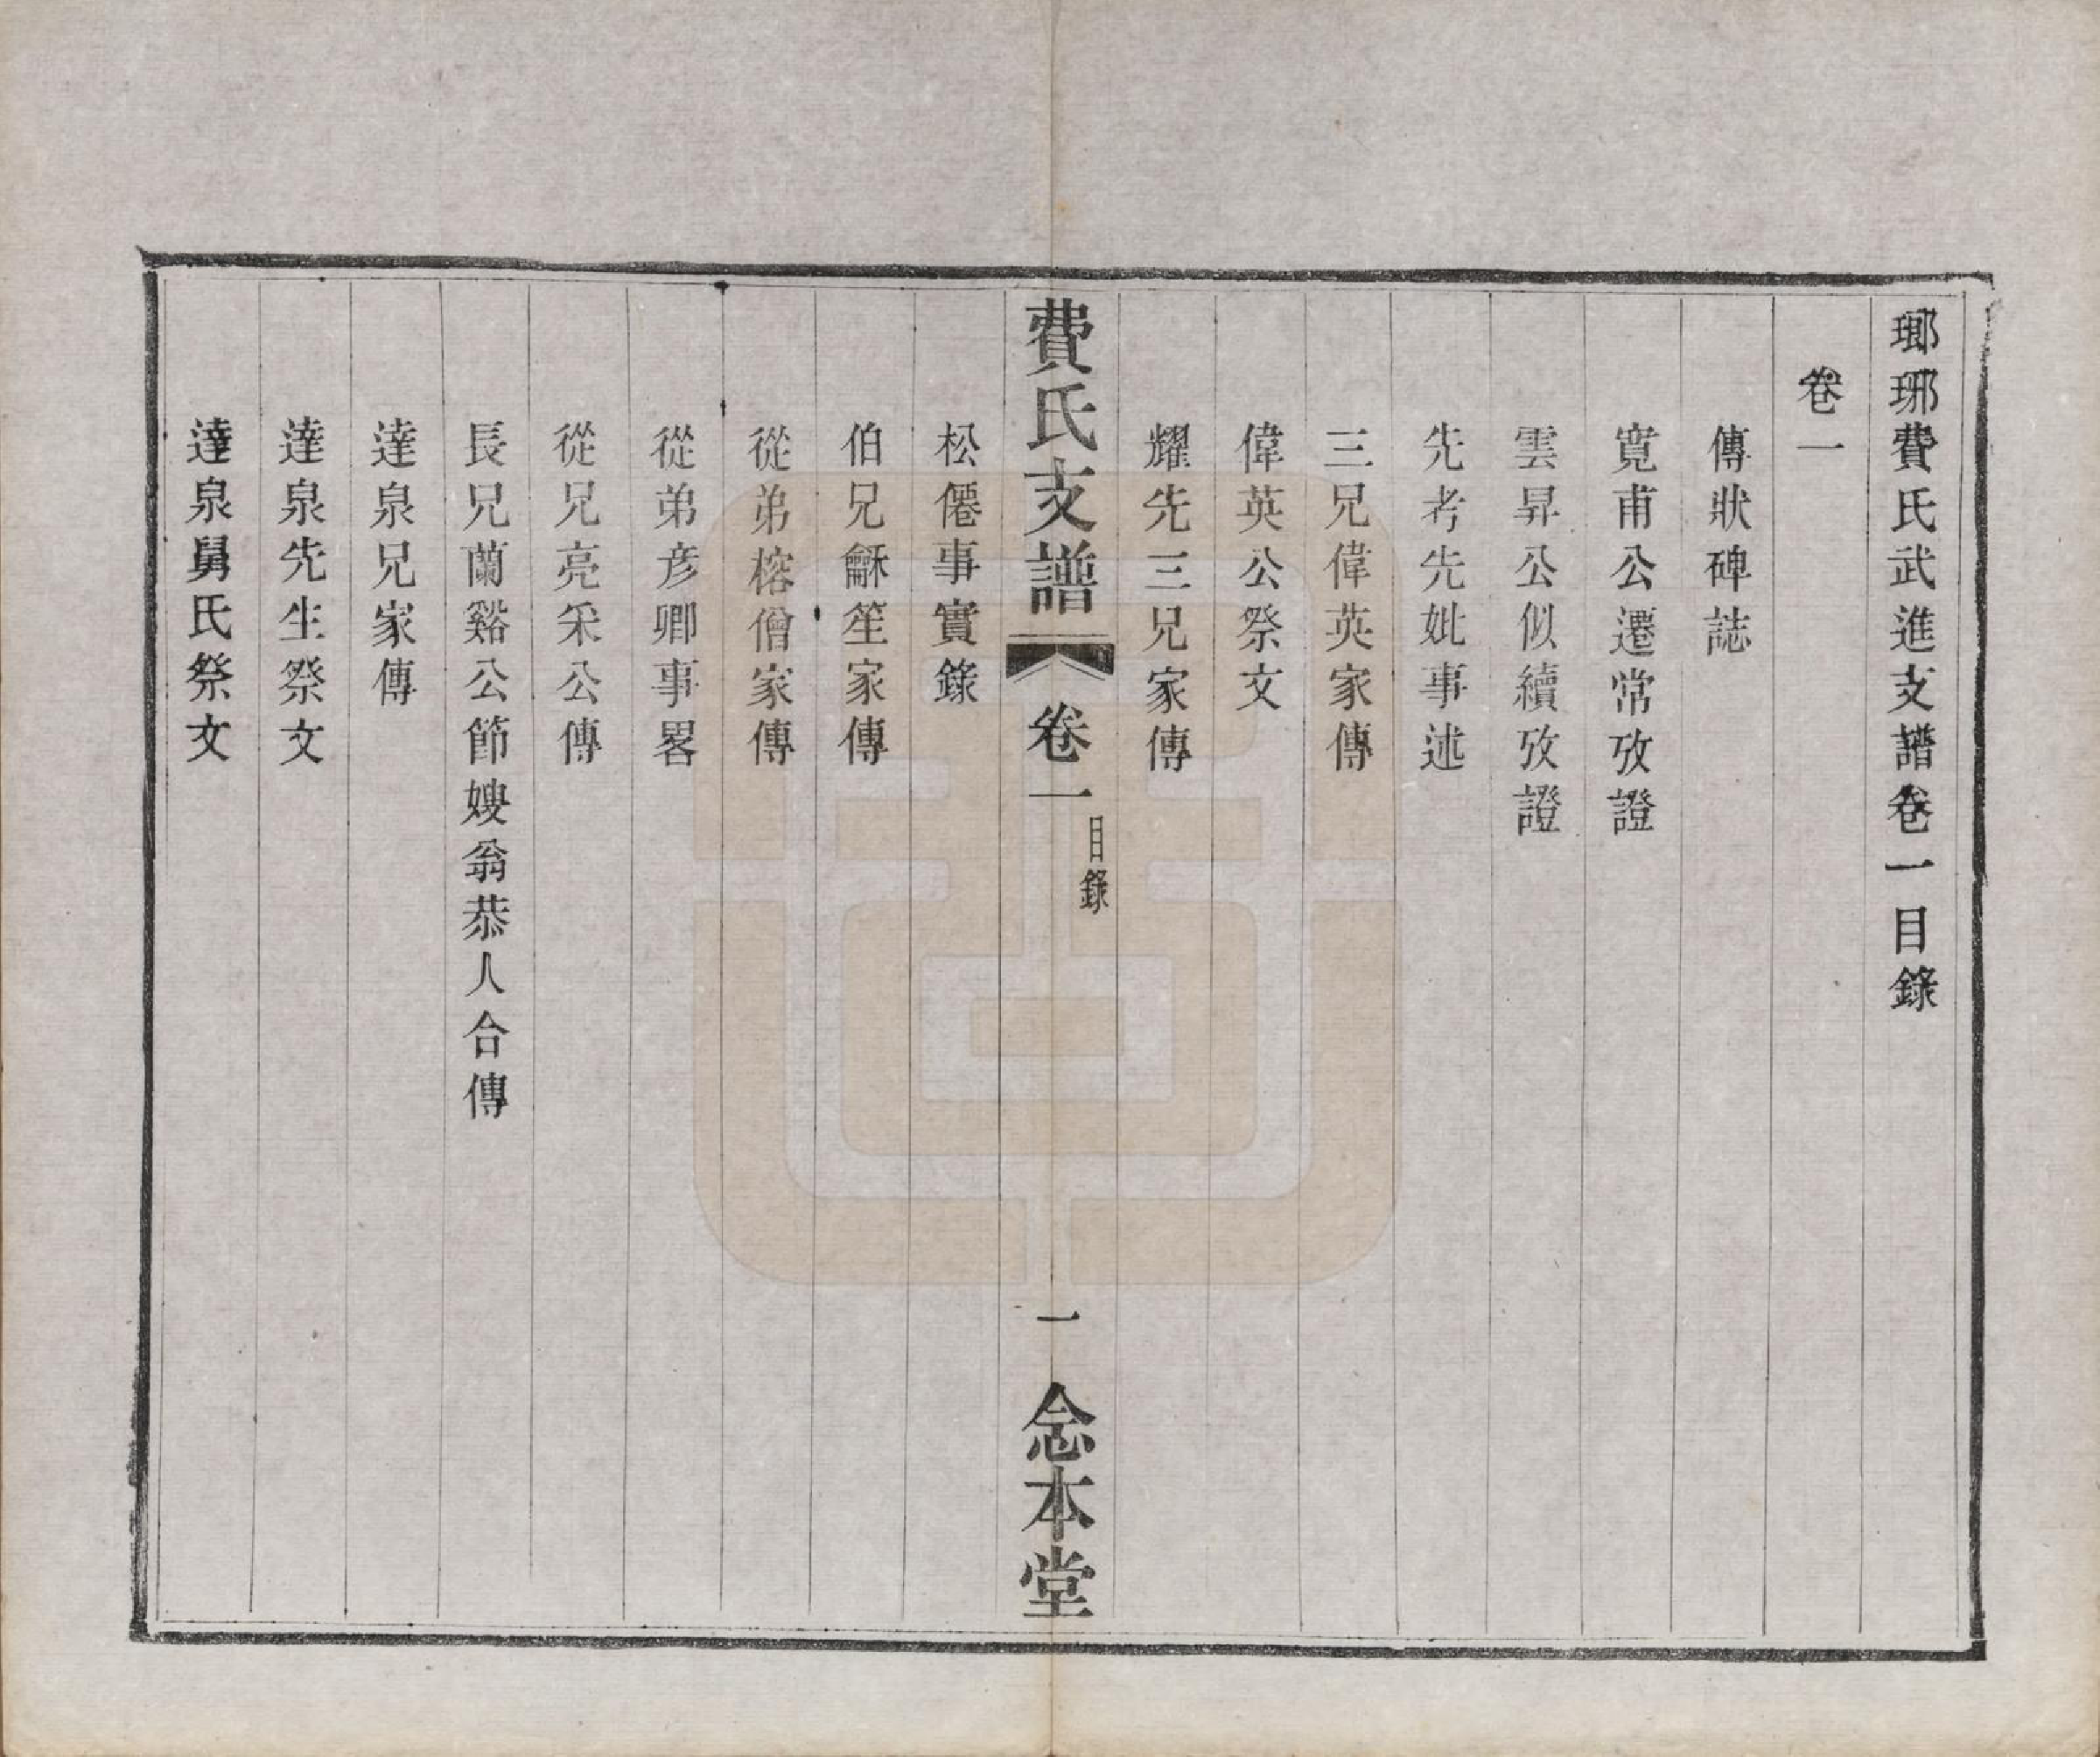 瑯琊費氏武進支譜卷一目錄
卷一
傳狀碑誌
寬甫公遷常攷證
雲昇公似續攷證
先考先妣事述
三兄偉英家傳
偉英公祭文
耀先三兄家傳
費氏支譜 卷一 目錄 一 念本堂
松僊事實錄
伯兄龢笙家傳
從弟榕僧家傳
從弟彥卿事畧
從兄亮采公傳
長兄蘭谿公節嫂翁恭人合傳
達泉兄家傳
達泉先生祭文
達泉舅氏祭文